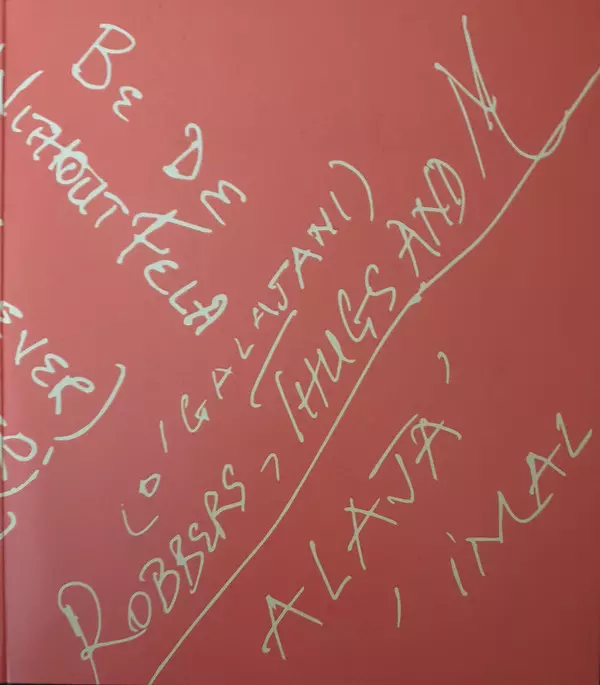 BE DM
WITHOUT FELA
EVER)
IGALAJANI)
ROBBERS, THUGS AND M
ALAJA,
, iMAL